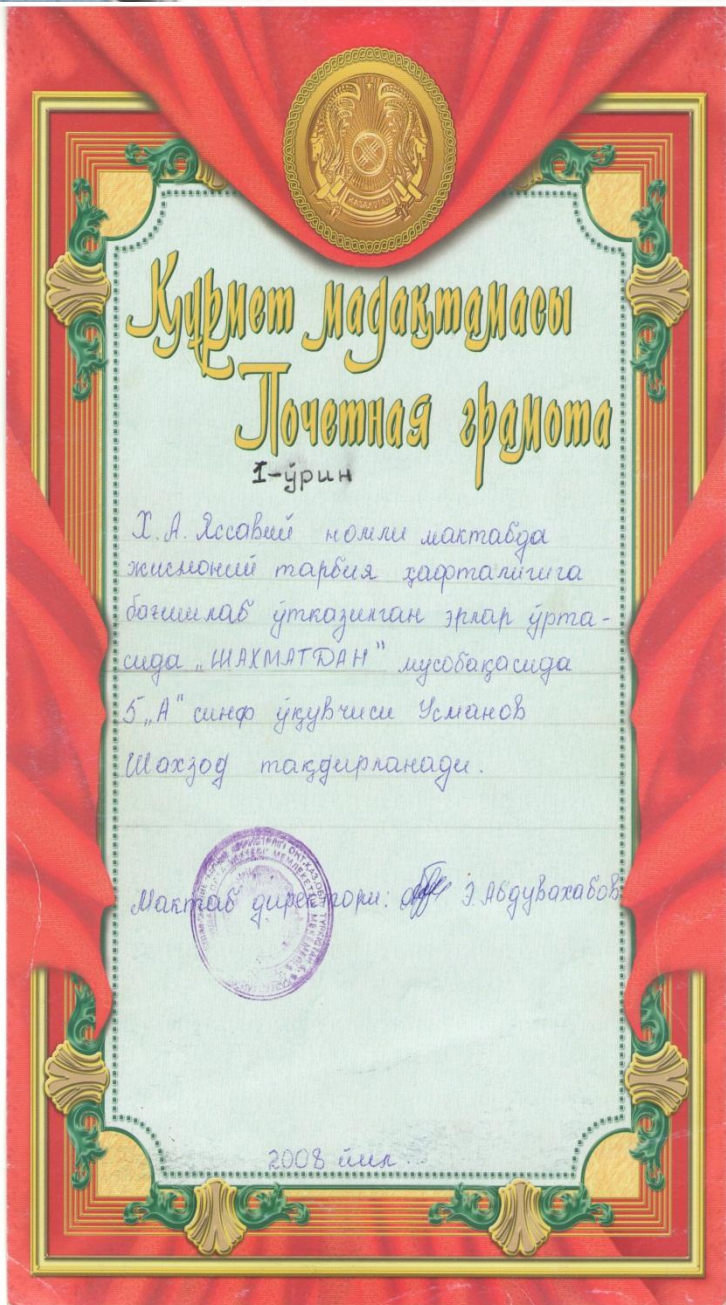 ҚАЗАҚСТАН
Құрмет мадақтамасы
Почетная грамота
1-ўрин
Х. А. Яссавий номли мактабда
жисмоний тарбия ҳафталигига
бағишлаб ўтказилган эрлар ўрта-
сида „ШАХМАТДАН" мусобақасида
5 „А" синф ўқувчиси Усманов
Шахзод тақдирланади.
Мактаб директори: Э Абдувахабов
2008 йил.